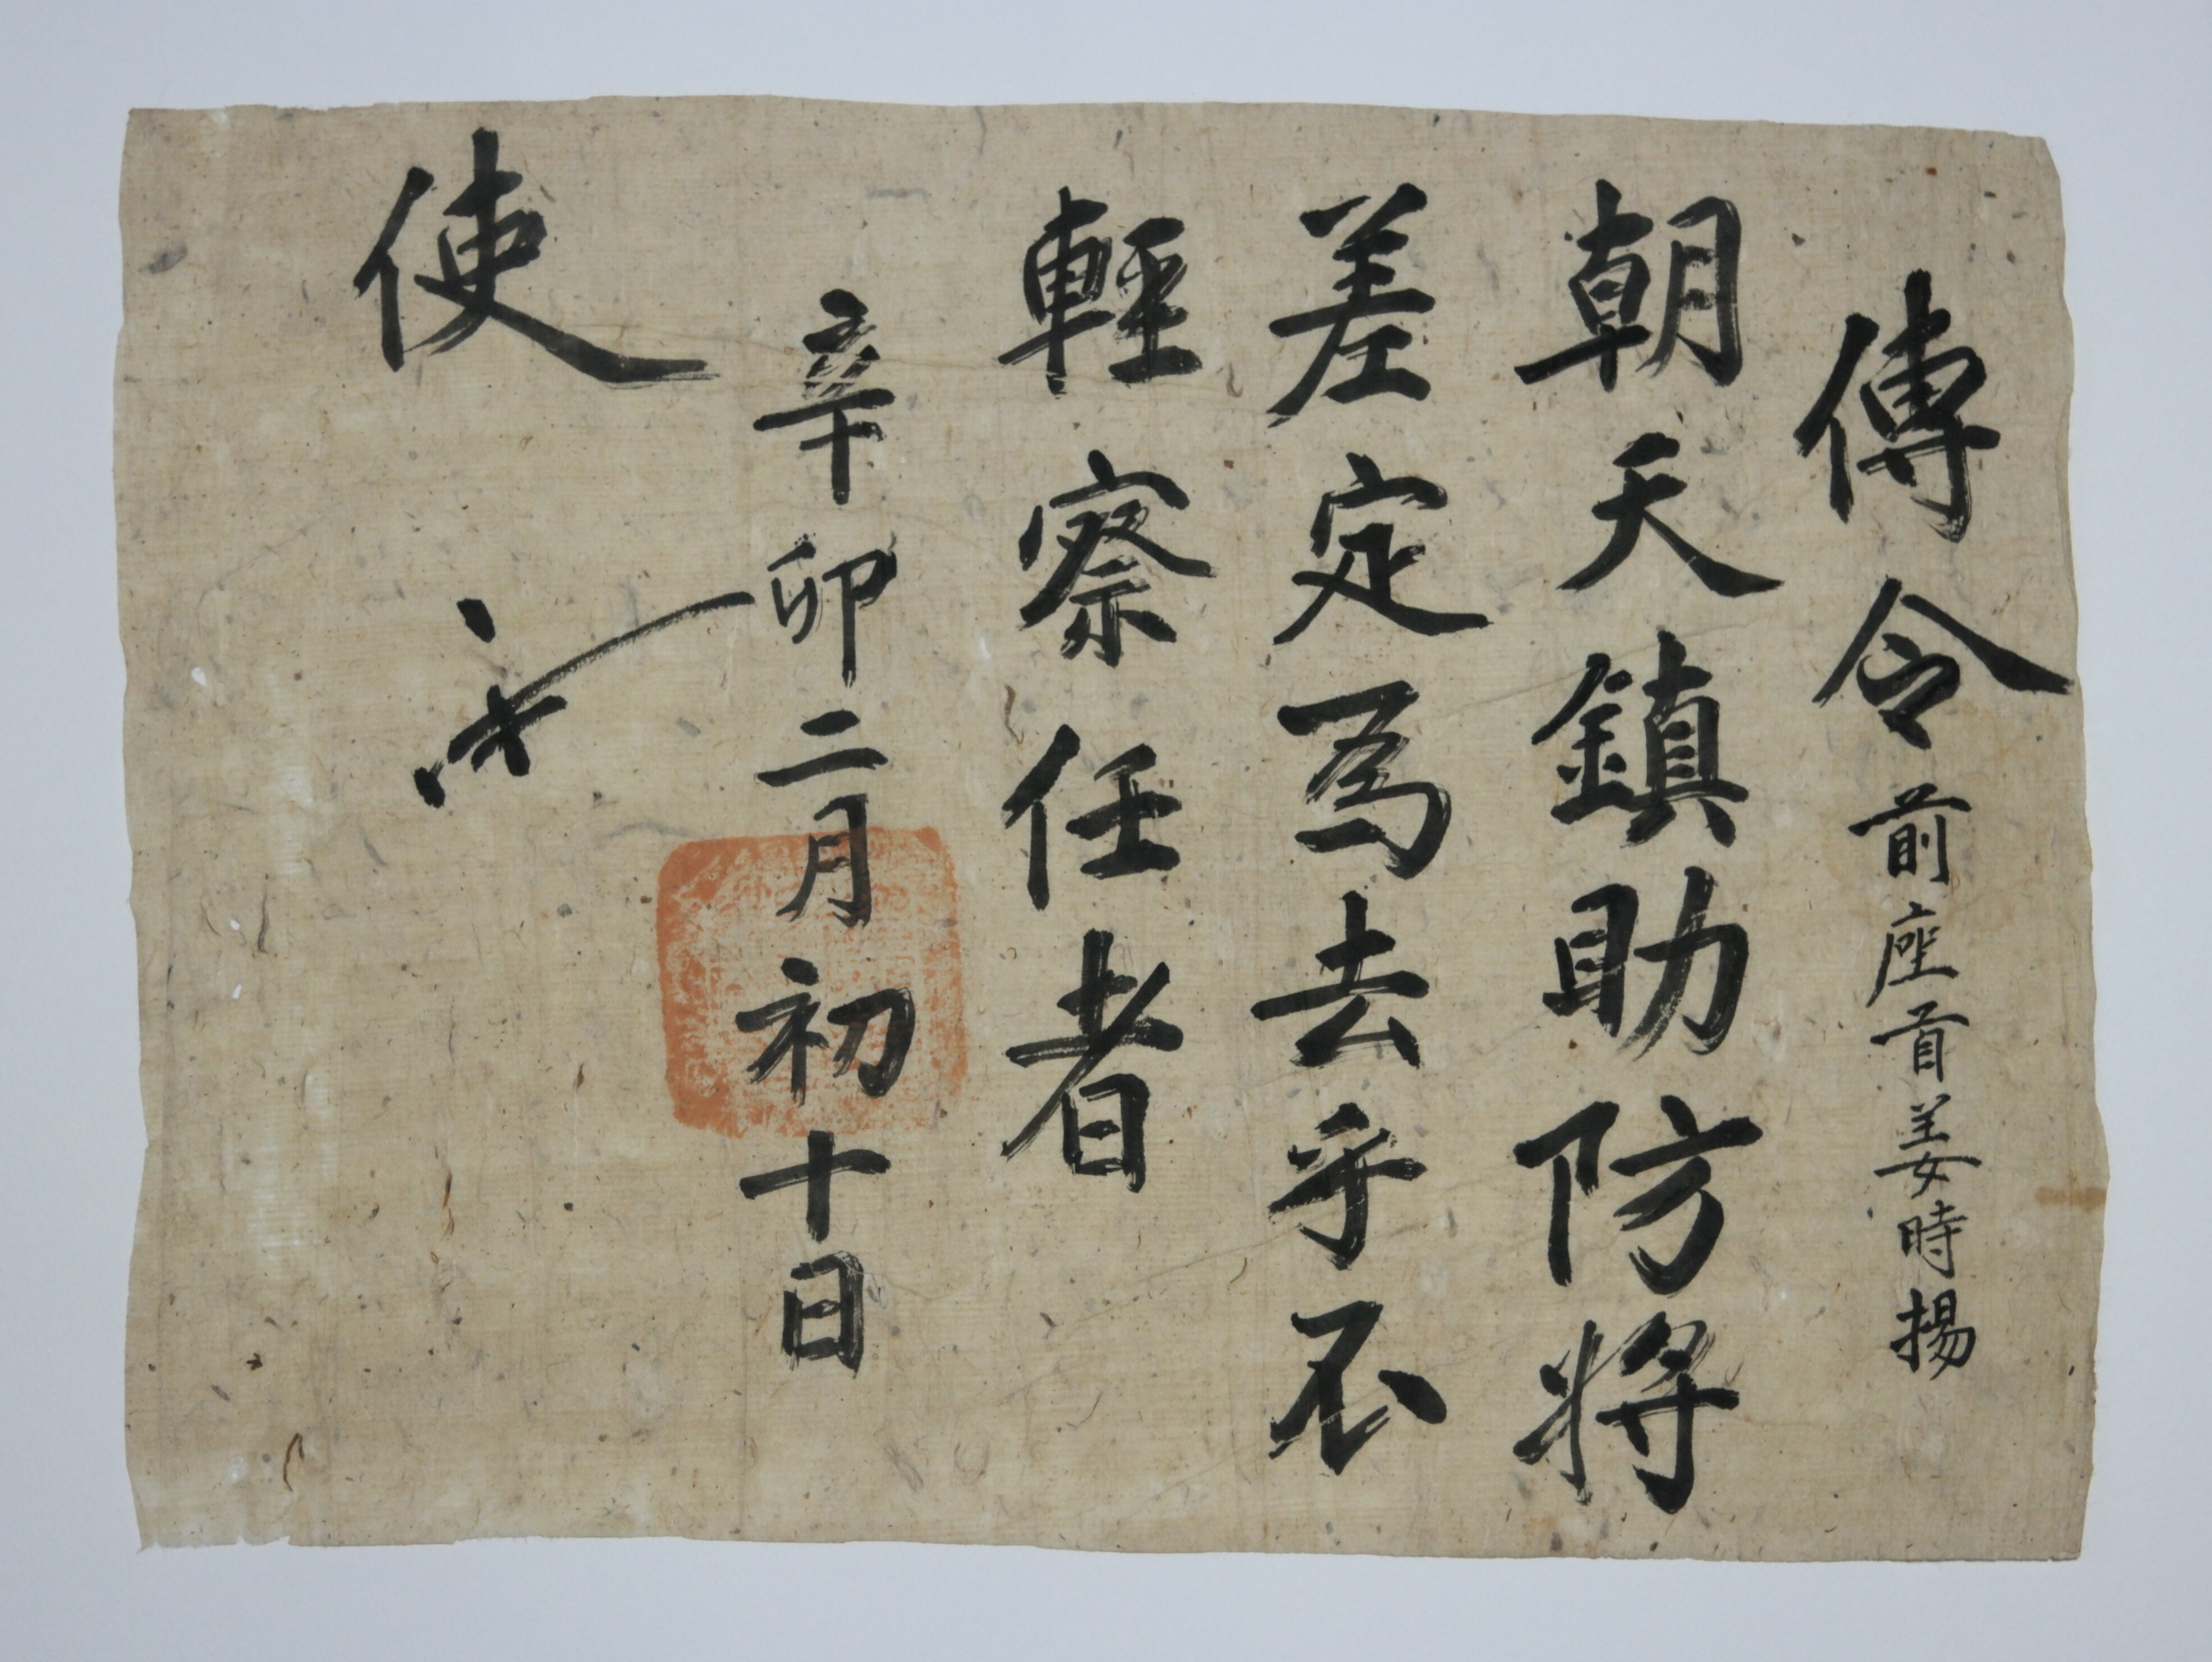 傳令 前座首姜時揚
朝天鎮助防將
差定爲去乎不
輕察任者
辛卯二月初十日
使